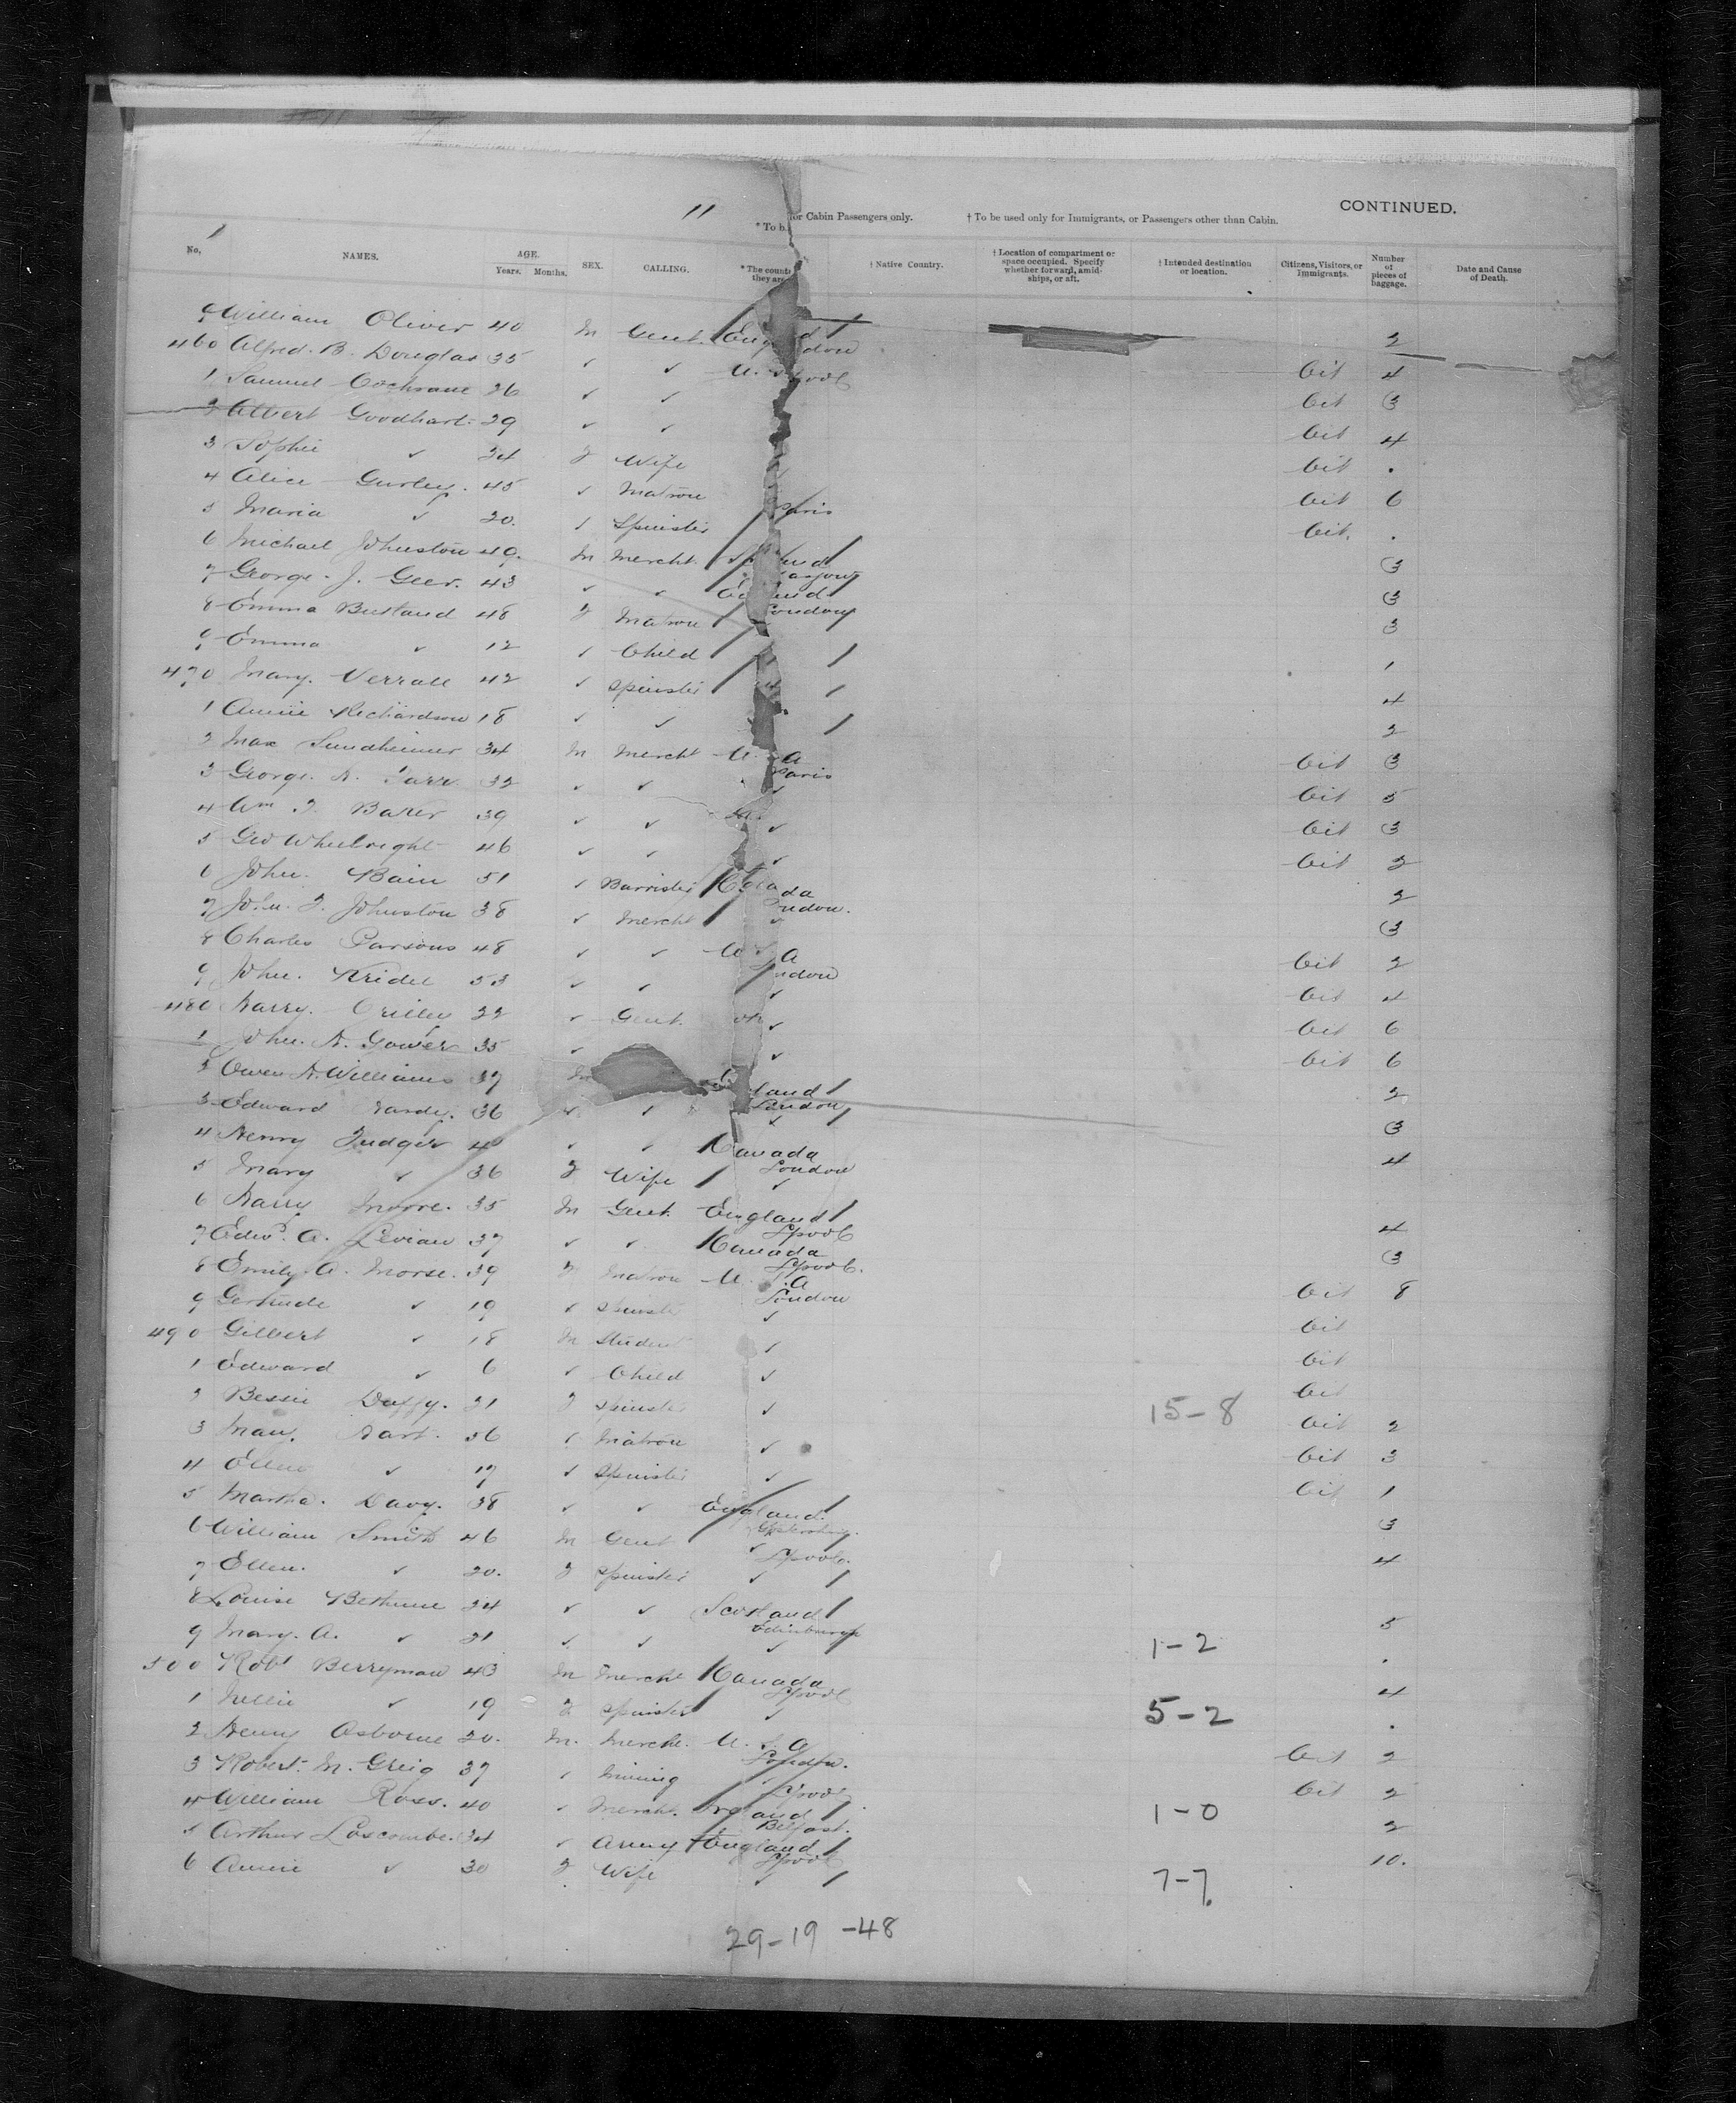 11
CONTINUED.
* To b or Cabin Passengers only. † To be used only for Immigrants, or Passengers other than Cabin.
1
No. NAMES. AGE. Years. Months. SEX. CALLING. * The count they are † Native Country. † Location of compartment or space occupied. Specify whether forward, amidships, or aft. † Intended destination or location. Citizens, Visitors, or Immigrants. Number of pieces of baggage. Date and Cause of Death.
9 William Oliver 40 M Gent. England London 2
460 Alfred. B. Douglas 35 ✓ ✓ U. Lpool Cit 4
1 Samuel Cochrane 26 ✓ ✓ Cit 3
2 Albert Goodhart 29 ✓ ✓ Cit 4
3 Sophie ✓ 24 F Wife Cit .
4 Alice Gurley. 45 ✓ Matron Paris Cit 6
5 Maria ✓ 20. ✓ Spinster Cit. .
6 Michael Johnston 49. M Mercht. 3
7 George. J. Geer. 43 ✓ ✓ London 3
8 Emma Bustand 48 F Matron 3
9 Emma ✓ 12 ✓ Child 1
470 Mary. Verrall 42 ✓ Spinster 4
1 Annie Richardson 18 ✓ ✓ 2
2 Max Sundheimer 34 M Mercht U. A Paris Cit 3
3 George. A. 32 ✓ ✓ ✓ Cit 5
4 Wm. F. Baker 39 ✓ ✓ ✓ Cit 3
5 Geo Wheelright 46 ✓ ✓ ✓ Cit 2
6 John. Bain 51 ✓ Barrister Canada London. 2
7 John. F. Johnston 38 ✓ Mercht ✓ 3
8 Charles Parsons 48 ✓ ✓ U S A London Cit 2
9 John. Kridel 53 ✓ ✓ ✓ Cit 4
480 Harry. 22 ✓ Gent. ✓ Cit 6
1 John. A. Gower 35 ✓ ✓ Cit 6
2 Owen A. Williams 37 M land London 2
3 Edward Hardy. 36 ✓ ✓ ✓ 3
4 Henry 40 ✓ ✓ Canada London 4
5 Mary ✓ 36 F Wife ✓
6 Harry 35 M Gent. England Lpool 4
7 Edwd. A. 37 ✓ ✓ Canada Lpool. 3
8 Emily A. Morse. 39 F Matron U. S. A London Cit 8
9 Gertrude ✓ 19 ✓ Spinster ✓ Cit
490 Gilbert ✓ 18 M Student ✓ Cit
1 Edward ✓ 6 ✓ Child ✓ Cit
2 Bessie Duffy. 21 F Spinster ✓ 15-8 Cit 2
3 Mary. Hart. 56 ✓ Matron ✓ Cit 3
4 Ellen ✓ 17 ✓ Spinster ✓ Cit 1
5 Martha. Davy. 38 ✓ ✓ England. 3
6 William Smith 46 M Gent ✓ Lpool. 4
7 Ellen. ✓ 20. F Spinster ✓
8 Louise Bethune 24 ✓ ✓ Scotland Edinburgh 5
9 Mary. A. ✓ 21 ✓ ✓ ✓ 1-2 .
500 Robt Berryman 43 M Mercht Canada Lpool 4
1 Nellie ✓ 19 F Spinster ✓ 5-2 .
2 Henry Osborne 20. M. Mercht. U. S. A London. Cit 2
3 Robert. M. Greig 37 ✓ Mining Lpool Cit 2
4 William Ross. 40 ✓ Mercht. Ireland Belfast. 1-0 2
5 Arthur Loscombe. 34 ✓ Army England Lpool 10.
6 Annie ✓ 30 F Wife ✓ 7-7
29-19-48